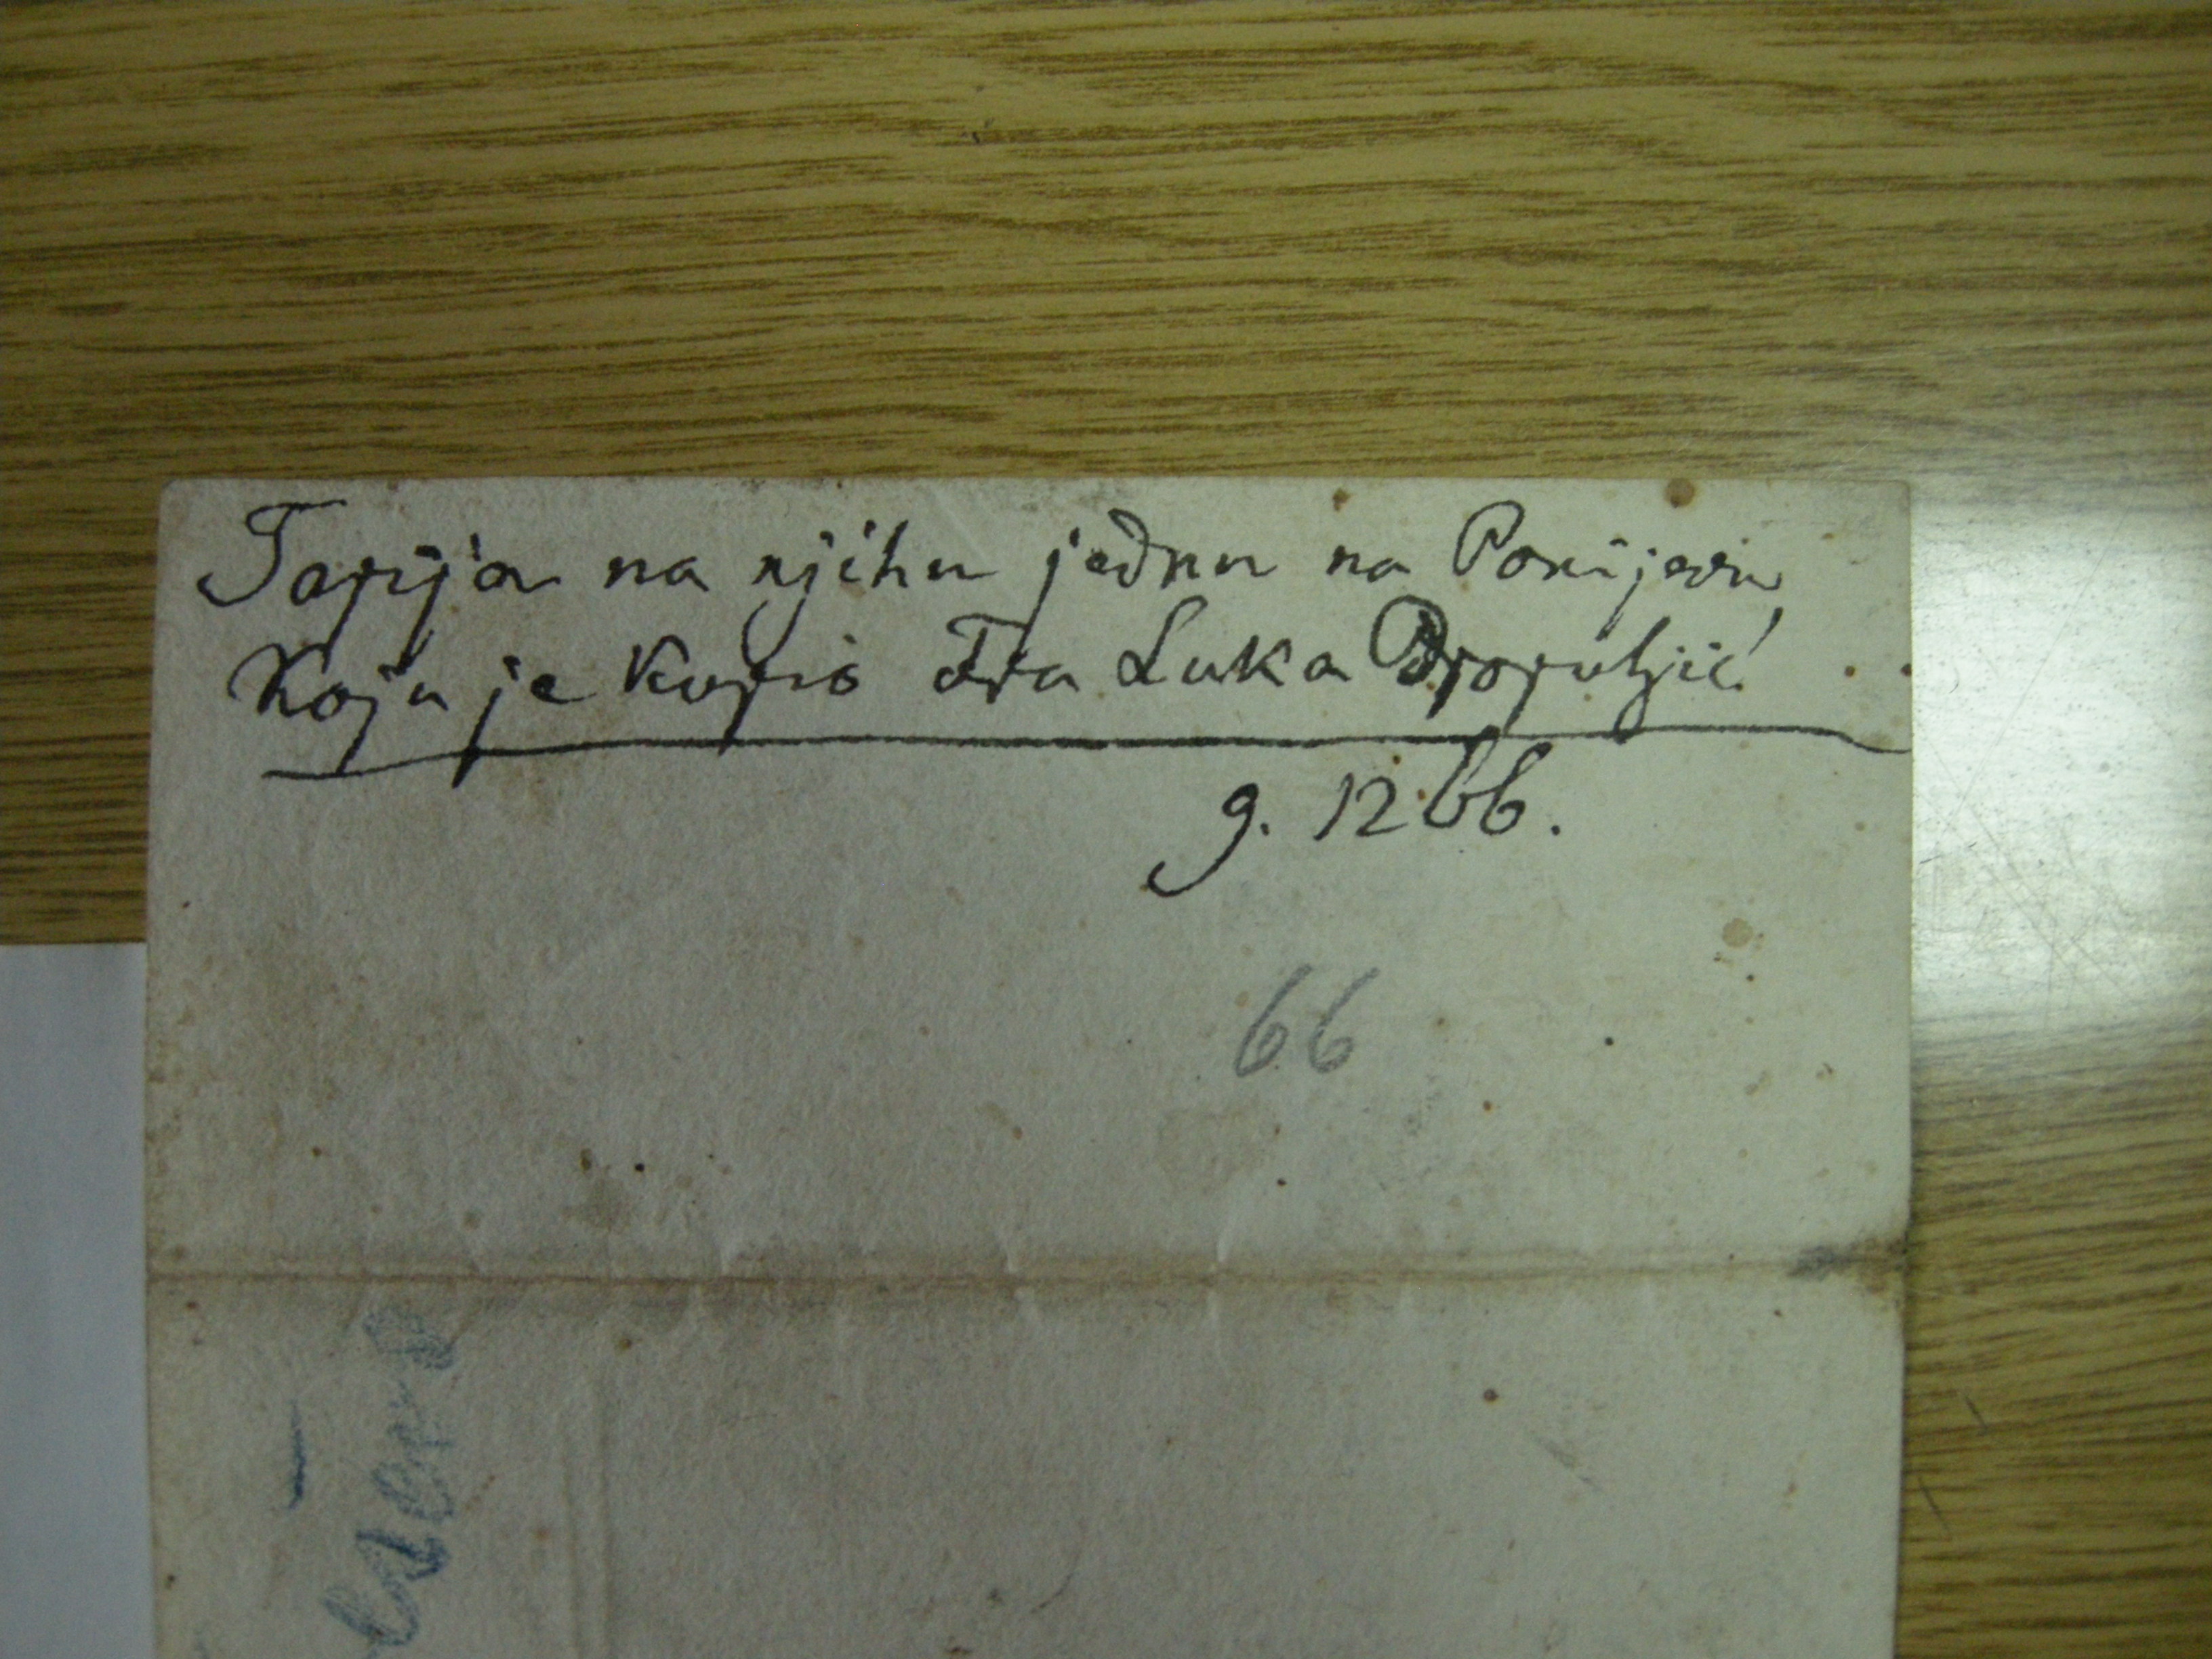 Tapija na njihu jednu na Ponijevu
Koju je kupio Fra Luka Dropuljić
g. 1266.
66